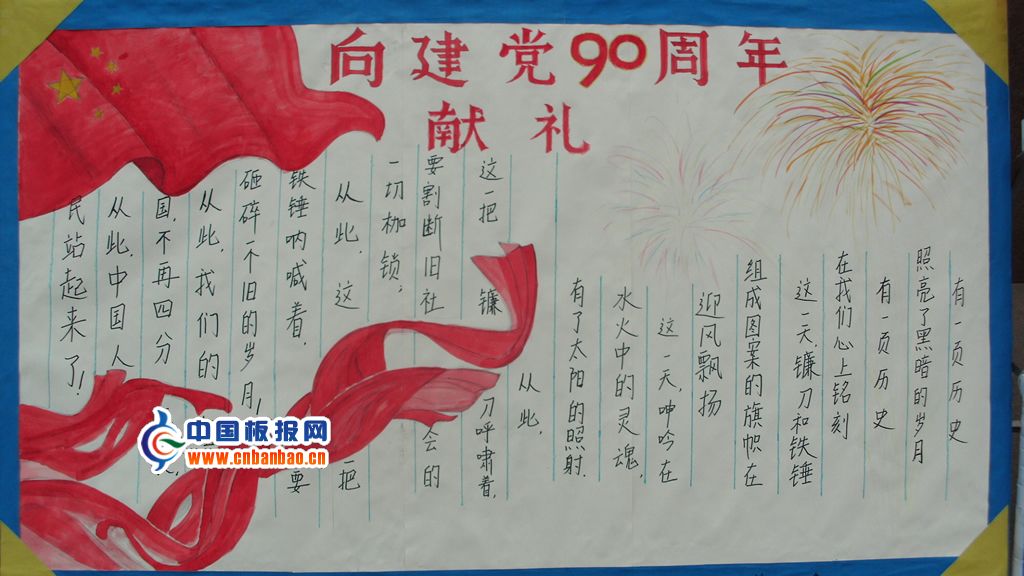 向建党90周年
献礼
有一页历史
照亮了黑暗的岁月
有一页历史
在我们心上铭刻
这一天,镰刀和铁锤
组成图案的旗帜在
迎风飘扬
这一天,呻吟在
水火中的灵魂,
有了太阳的照射.
从此,
这一把镰刀呼啸着,
要割断旧社会的
一切枷锁,
从此,这一把
铁锤呐喊着,要
砸碎一个旧的岁月!
从此,我们的
国,不再四分
从此,中国人
民站起来了!
中国板报网
www.cnbanbao.cn